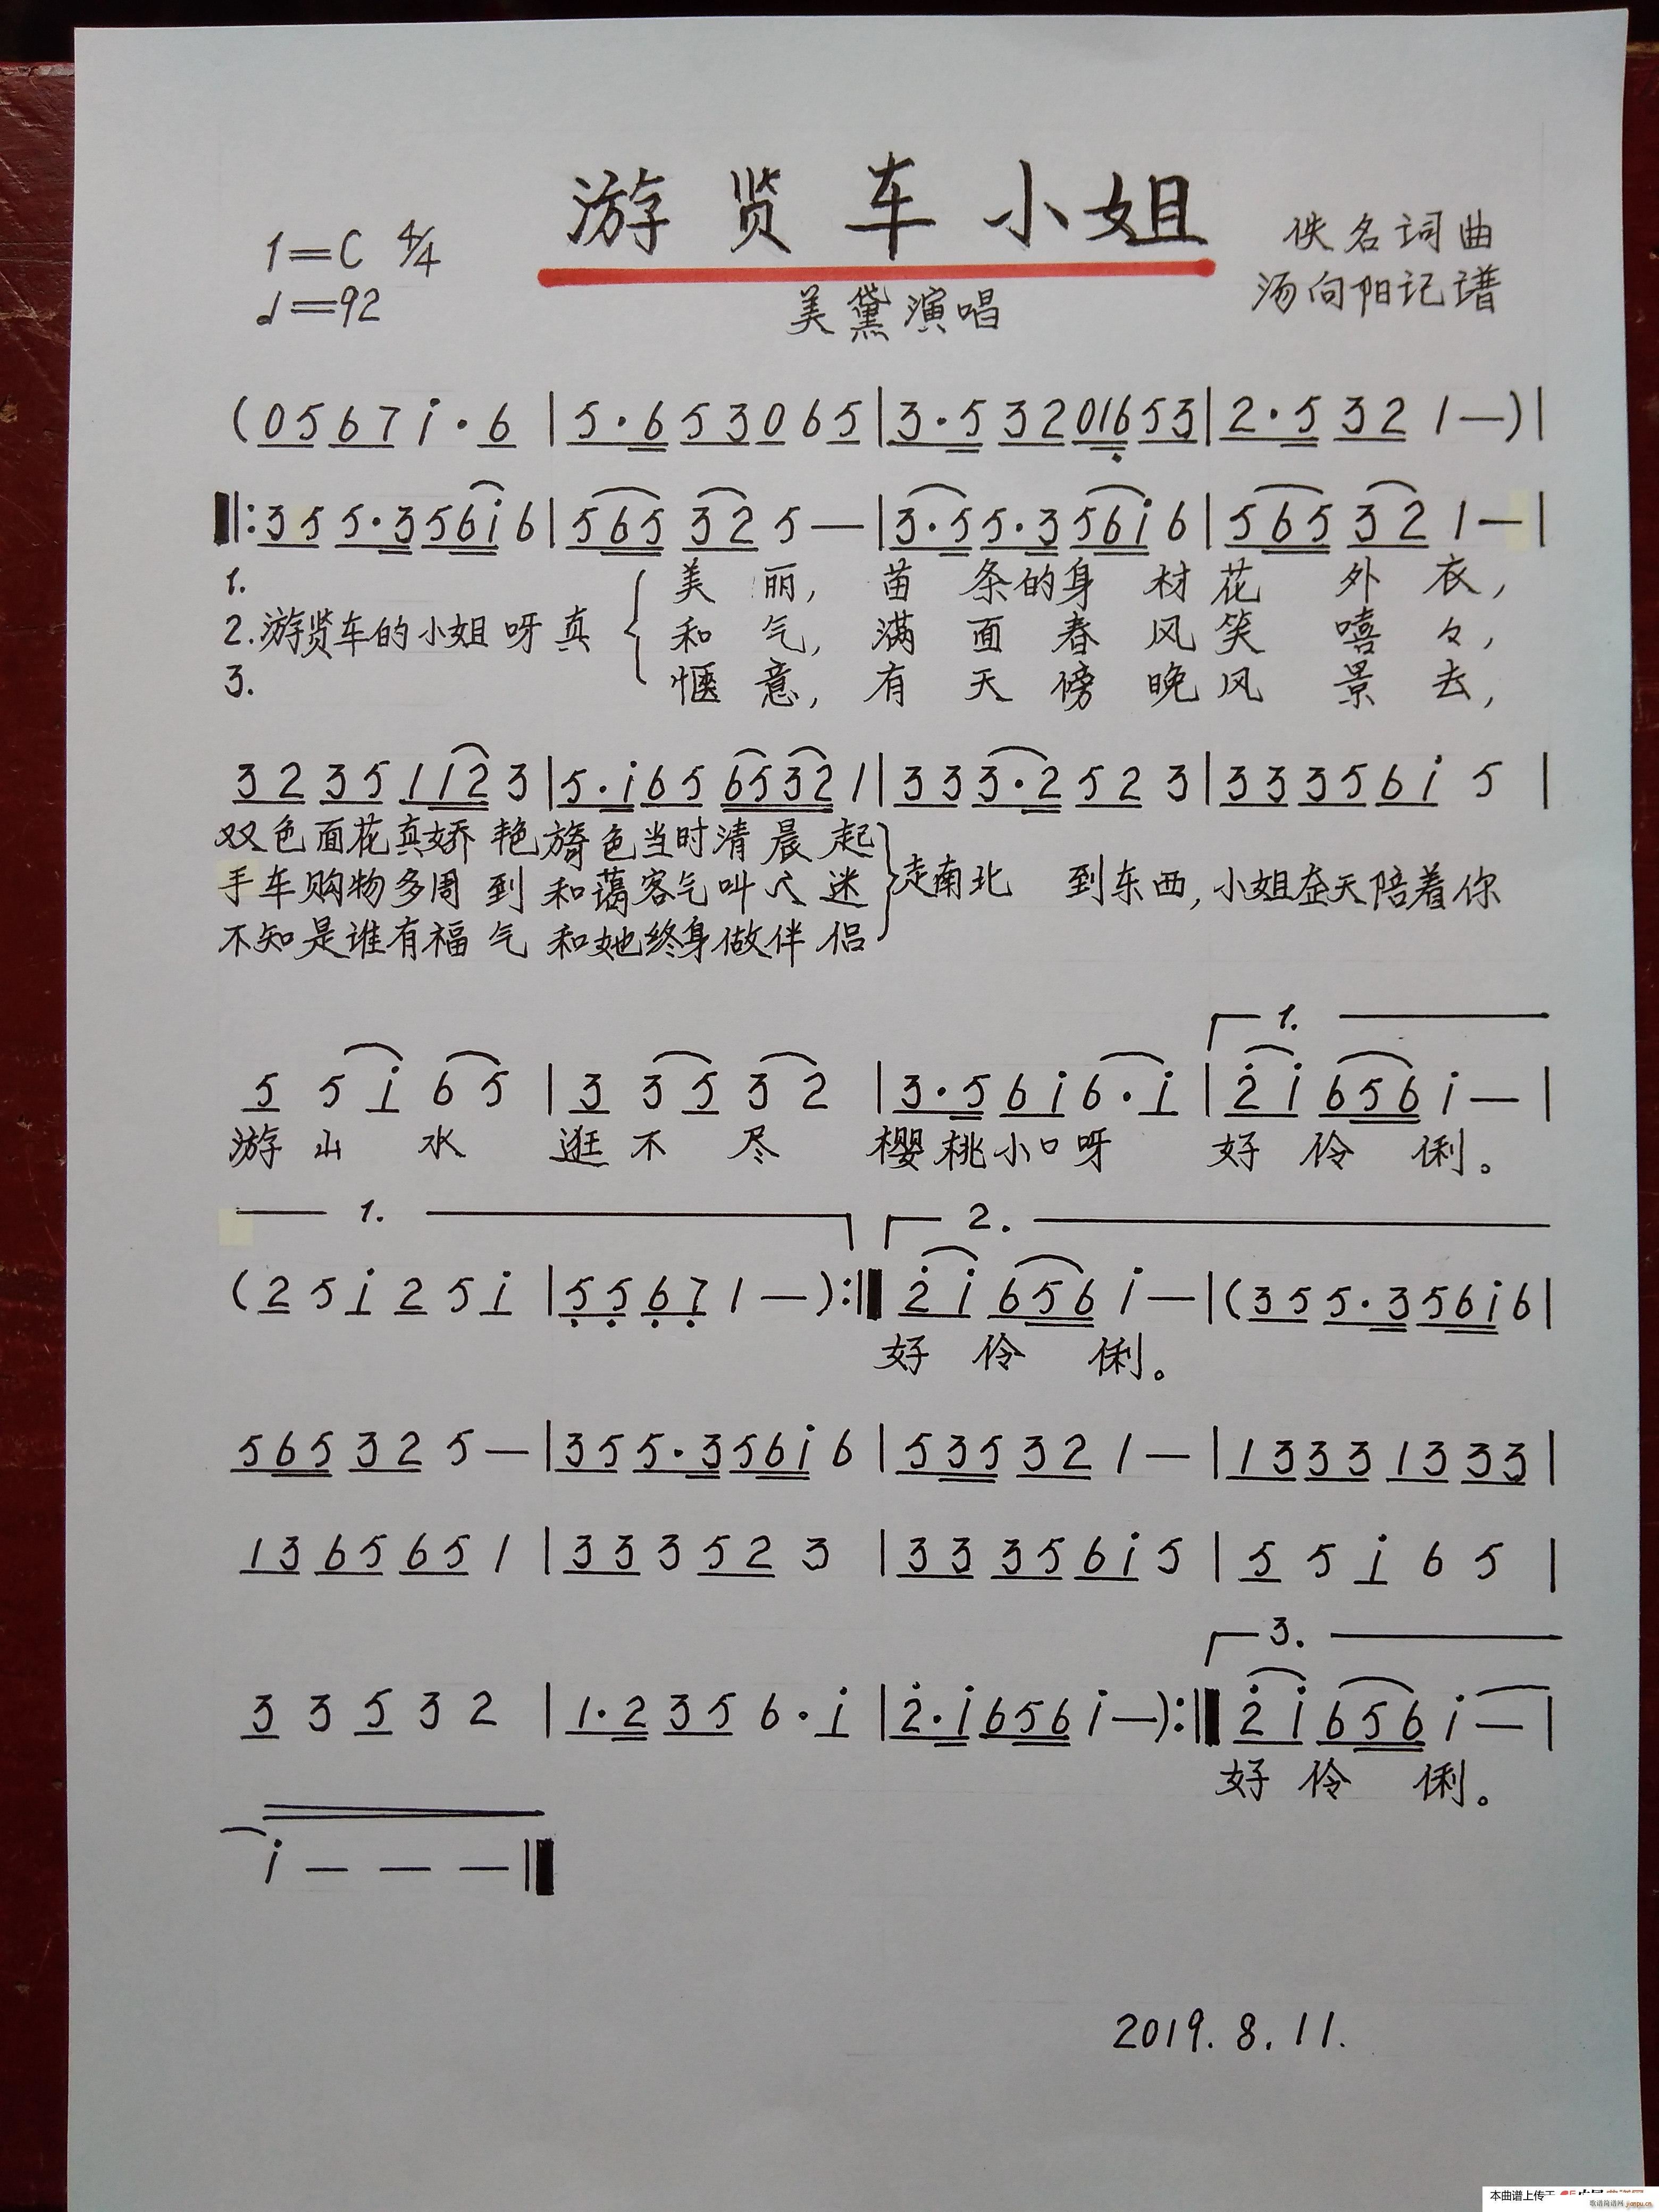 游贤车小姐
1=C 4/4
佚名词曲
♩=92
美黛演唱
汤向阳记谱
(0 5 6 7 i · 6 | 5 · 6 5 3 0 6 5 | 3 · 5 3 2 0 1 6 5 3 | 2 · 5 3 2 1 — ) |
‖: 3 5 5 · 3 5 6 i 6 | 5 6 5 3 2 5 — | 3 · 5 5 · 3 5 6 i 6 | 5 6 5 3 2 1 — |
1. 美丽,苗条的身材花外衣,
2.游贤车的小姐呀真 和气,满面春风笑嘻々,
3. 惬意,有天傍晚风景去,
3 2 3 5 1 1 2 3 | 5 · i 6 5 6 5 3 2 1 | 3 3 3 · 2 5 2 3 | 3 3 3 5 6 i 5 |
双色面花真娇艳旖色当时清晨起
手车购物多周到和蔼客气叫人迷 走南北 到东西,小姐天陪着你
不知是谁有福气和她终身做伴侣
5 5 i 6 5 | 3 3 5 3 2 | 3 · 5 6 i 6 · i | 1. 2̇ i 6 5 6 i — |
游山水 逛不尽 樱桃小口呀 好伶俐。
1. 2.
(2 5 i 2 5 i | 5 5 6 7 1 — ) :‖ 2̇ i 6 5 6 i — | (3 5 5 · 3 5 6 i 6 |
好伶俐。
5 6 5 3 2 5 — | 3 5 5 · 3 5 6 i 6 | 5 3 5 3 2 1 — | 1 3 3 3 1 3 3 3 |
1 3 6 5 6 5 1 | 3 3 3 5 2 3 | 3 3 3 5 6 i 5 | 5 5 i 6 5 |
3.
3 3 5 3 2 | 1 · 2 3 5 6 · i | 2̇ · i 6 5 6 i — ) :‖ 2̇ i 6 5 6 i — |
好伶俐。
i — — — ‖
2019.8.11.
本曲谱上传于
歌谱简谱网 jianpu.cn